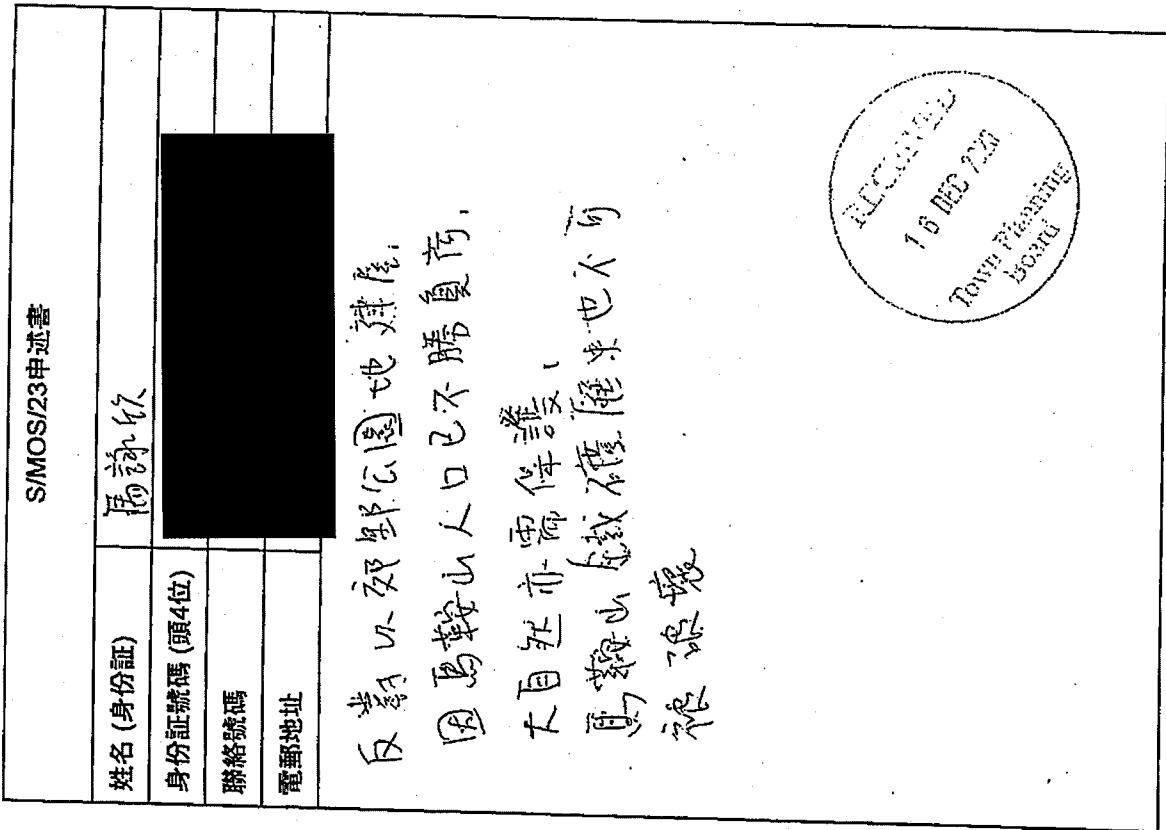 S/MOS/23申述書
姓名 (身份証)
詠欣
身份証號碼 (頭4位)
聯絡號碼
電郵地址
反對以郊野公園地建屋.
因馬鞍山人口已不勝負荷.
大自然亦需保護.
馬鞍山鐵礦歷史也不可
被破壞
RECEIVED
16 DEC 2020
Town Planning
Board